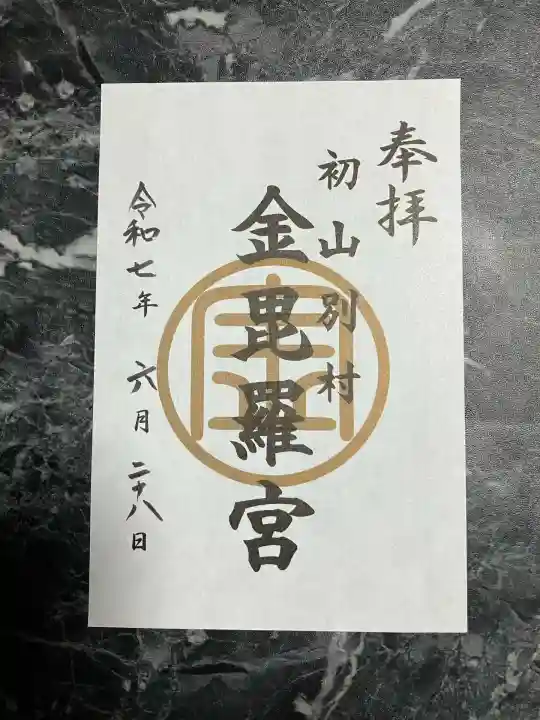 奉拝
初山別村
金毘羅宮
令和七年 六月 二十八日